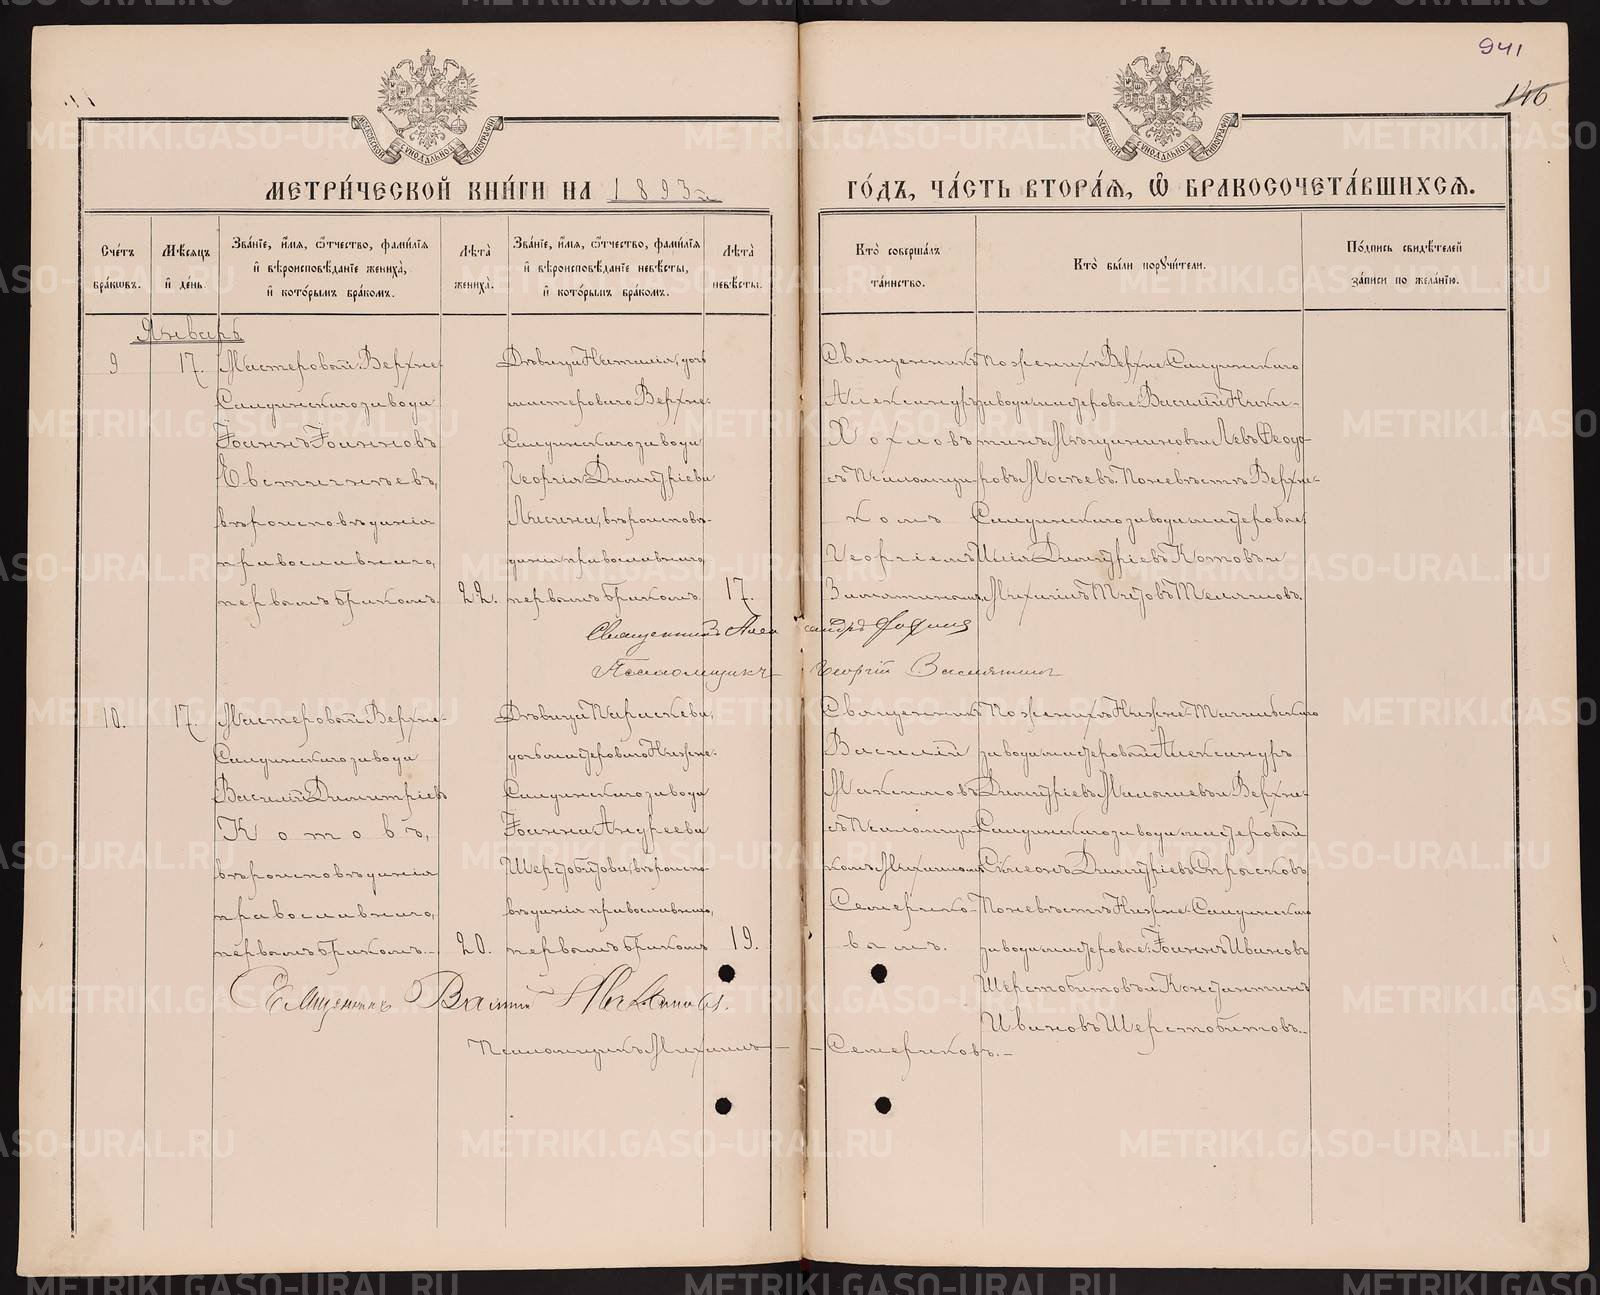 941
146
МОСКОВСКОЙ СѴНОДАЛЬНОЙ ТИПОГРАФІИ
МОСКОВСКОЙ СѴНОДАЛЬНОЙ ТИПОГРАФІИ
МЕТРИ́ЧЕСКОЙ КНИ́ГИ НА 1893 го́дъ, ча́сть втора́ѧ, ѽ бракосочета́вшихсѧ.
Сче́тъ бра́кѡвъ.
Мѣ́сѧцъ и҆ де́нь.
Зва́нїе, и҆́мѧ, ѻ҆́тчество, фами́лїѧ и҆ вѣроисповѣ́данїе жениха̀, и҆ кото́рымъ бра́комъ.
Лѣ́та жениха̀.
Зва́нїе, и҆́мѧ, ѻ҆́тчество, фами́лїѧ и҆ вѣроисповѣ́данїе невѣ́сты, и҆ кото́рымъ бра́комъ.
Лѣ́та невѣ́сты.
Кто̀ соверша́лъ та́инство.
Кто̀ бы́ли порꙋчи́тели.
По́дпись свидѣ́телей за́писи по жела́нїю.
Январь
9
17.
Мастеровой Верхне-
Салдинскаго завода
Іоаннъ Іоанновъ
Евстигнѣевъ,
вѣроисповѣданія
православнаго,
первымъ бракомъ.
22.
Дѣвица Наталія, дочь
мастероваго Верхне-
Салдинскаго завода
Георгія Димитріева
Лысина, вѣроисповѣ-
данія православнаго,
первымъ бракомъ.
17.
Священникъ
Александръ
Хохловъ
съ Псаломщи-
комъ
Георгіемъ
Замятинымъ
По женихѣ Верхне-Салдинскаго
завода мастеровые: Василій Ники-
тинъ и Левъ Ѳеодо-
ровъ Мосѣевъ. По невѣстѣ Верхне-
Салдинскаго завода мастеровые
Илія Димитріевъ Котовъ и
Михаилъ Титовъ
Священникъ Александръ
Псаломщикъ Георгій
10.
17.
Мастеровой Верхне-
Салдинскаго завода
Василій Димитріевъ
Котовъ,
вѣроисповѣданія
православнаго,
первымъ бракомъ.
20.
Дѣвица Параскева,
дочь мастероваго Нижне-
Салдинскаго завода
Іоанна Андреева
Шерстобитова, вѣроиспо-
вѣданія православнаго,
первымъ бракомъ
19.
Священникъ
Василій
Максимовъ
съ Псаломщи-
комъ Михаиломъ
Семерико-
вымъ.
По женихѣ Нижне-Тагильскаго
завода мастеровой Александръ
Димитріевъ Малышевъ и Верхне-
Салдинскаго завода мастеровой
Симеонъ Димитріевъ
По невѣстѣ Нижне-Салдинскаго
завода мастеровые: Іоаннъ Ивановъ
Шерстобитовъ и Константинъ
Ивановъ Шерстобитовъ.
Священникъ Василій Максимовъ.
Псаломщикъ Михаилъ Семериковъ.
METRIKI.GASO-URAL.RU